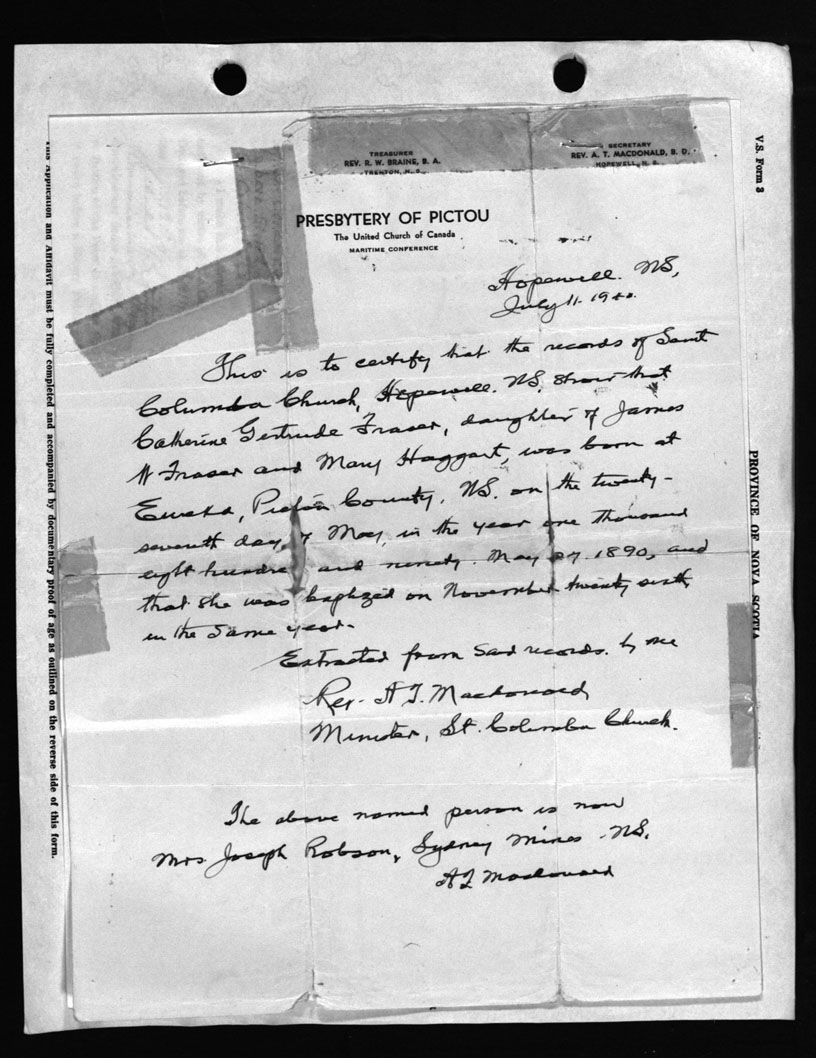 TREASURER
REV. R. W. BRAINE, B. A.
TRENTON, N. S.
SECRETARY
REV. A. T. MACDONALD, B. D.
HOPEWELL, N. S.
PRESBYTERY OF PICTOU
The United Church of Canada
MARITIME CONFERENCE
Hopewell. NS,
July 11. 1940.
This is to certify that the records of Saint
Columba Church, Hopewell. NS, show that
Catherine Gertrude Fraser, daughter of James
W Fraser and Mary Haggart, was born at
Eureka, Pictou County, NS. on the twenty-
seventh day of May, in the year one thousand
eight hundred and ninety. May 27. 1890, and
that she was baptized on November twenty sixth
in the same year.
Extracted from said records. by me
Rev. A T. Macdonald
Minister, St. Columba Church.
The above named person is now
Mrs Joseph Robson, Sydney Mines - NS.
A T Macdonald
V.S. Form 3
PROVINCE OF NOVA SCOTIA
This Application and Affidavit must be fully completed and accompanied by documentary proof of age as outlined on the reverse side of this form.